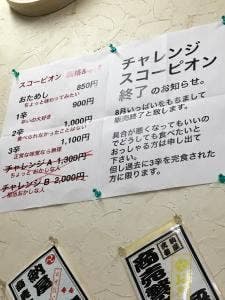 スコーピオン
おためし 850円
ちょっと味わってみたい
1辛 900円
辛いの大好き
2辛 1,000円
食べられなかったことはない
3辛 1,100円
正常な味覚なら無理
チャレンジA 1,300円
ちょっとおかしな人
チャレンジB 2,000円
相当おかしな人
チャレンジ
スコーピオン
終了のお知らせ。
8月いっぱいをもちまして
販売終了と致します。
具合が悪くなってもいいの
でどうしても食べたいと
おっしゃる方は申し出て
下さい。
但し過去に3辛を完食された
方に限ります。
商売繁